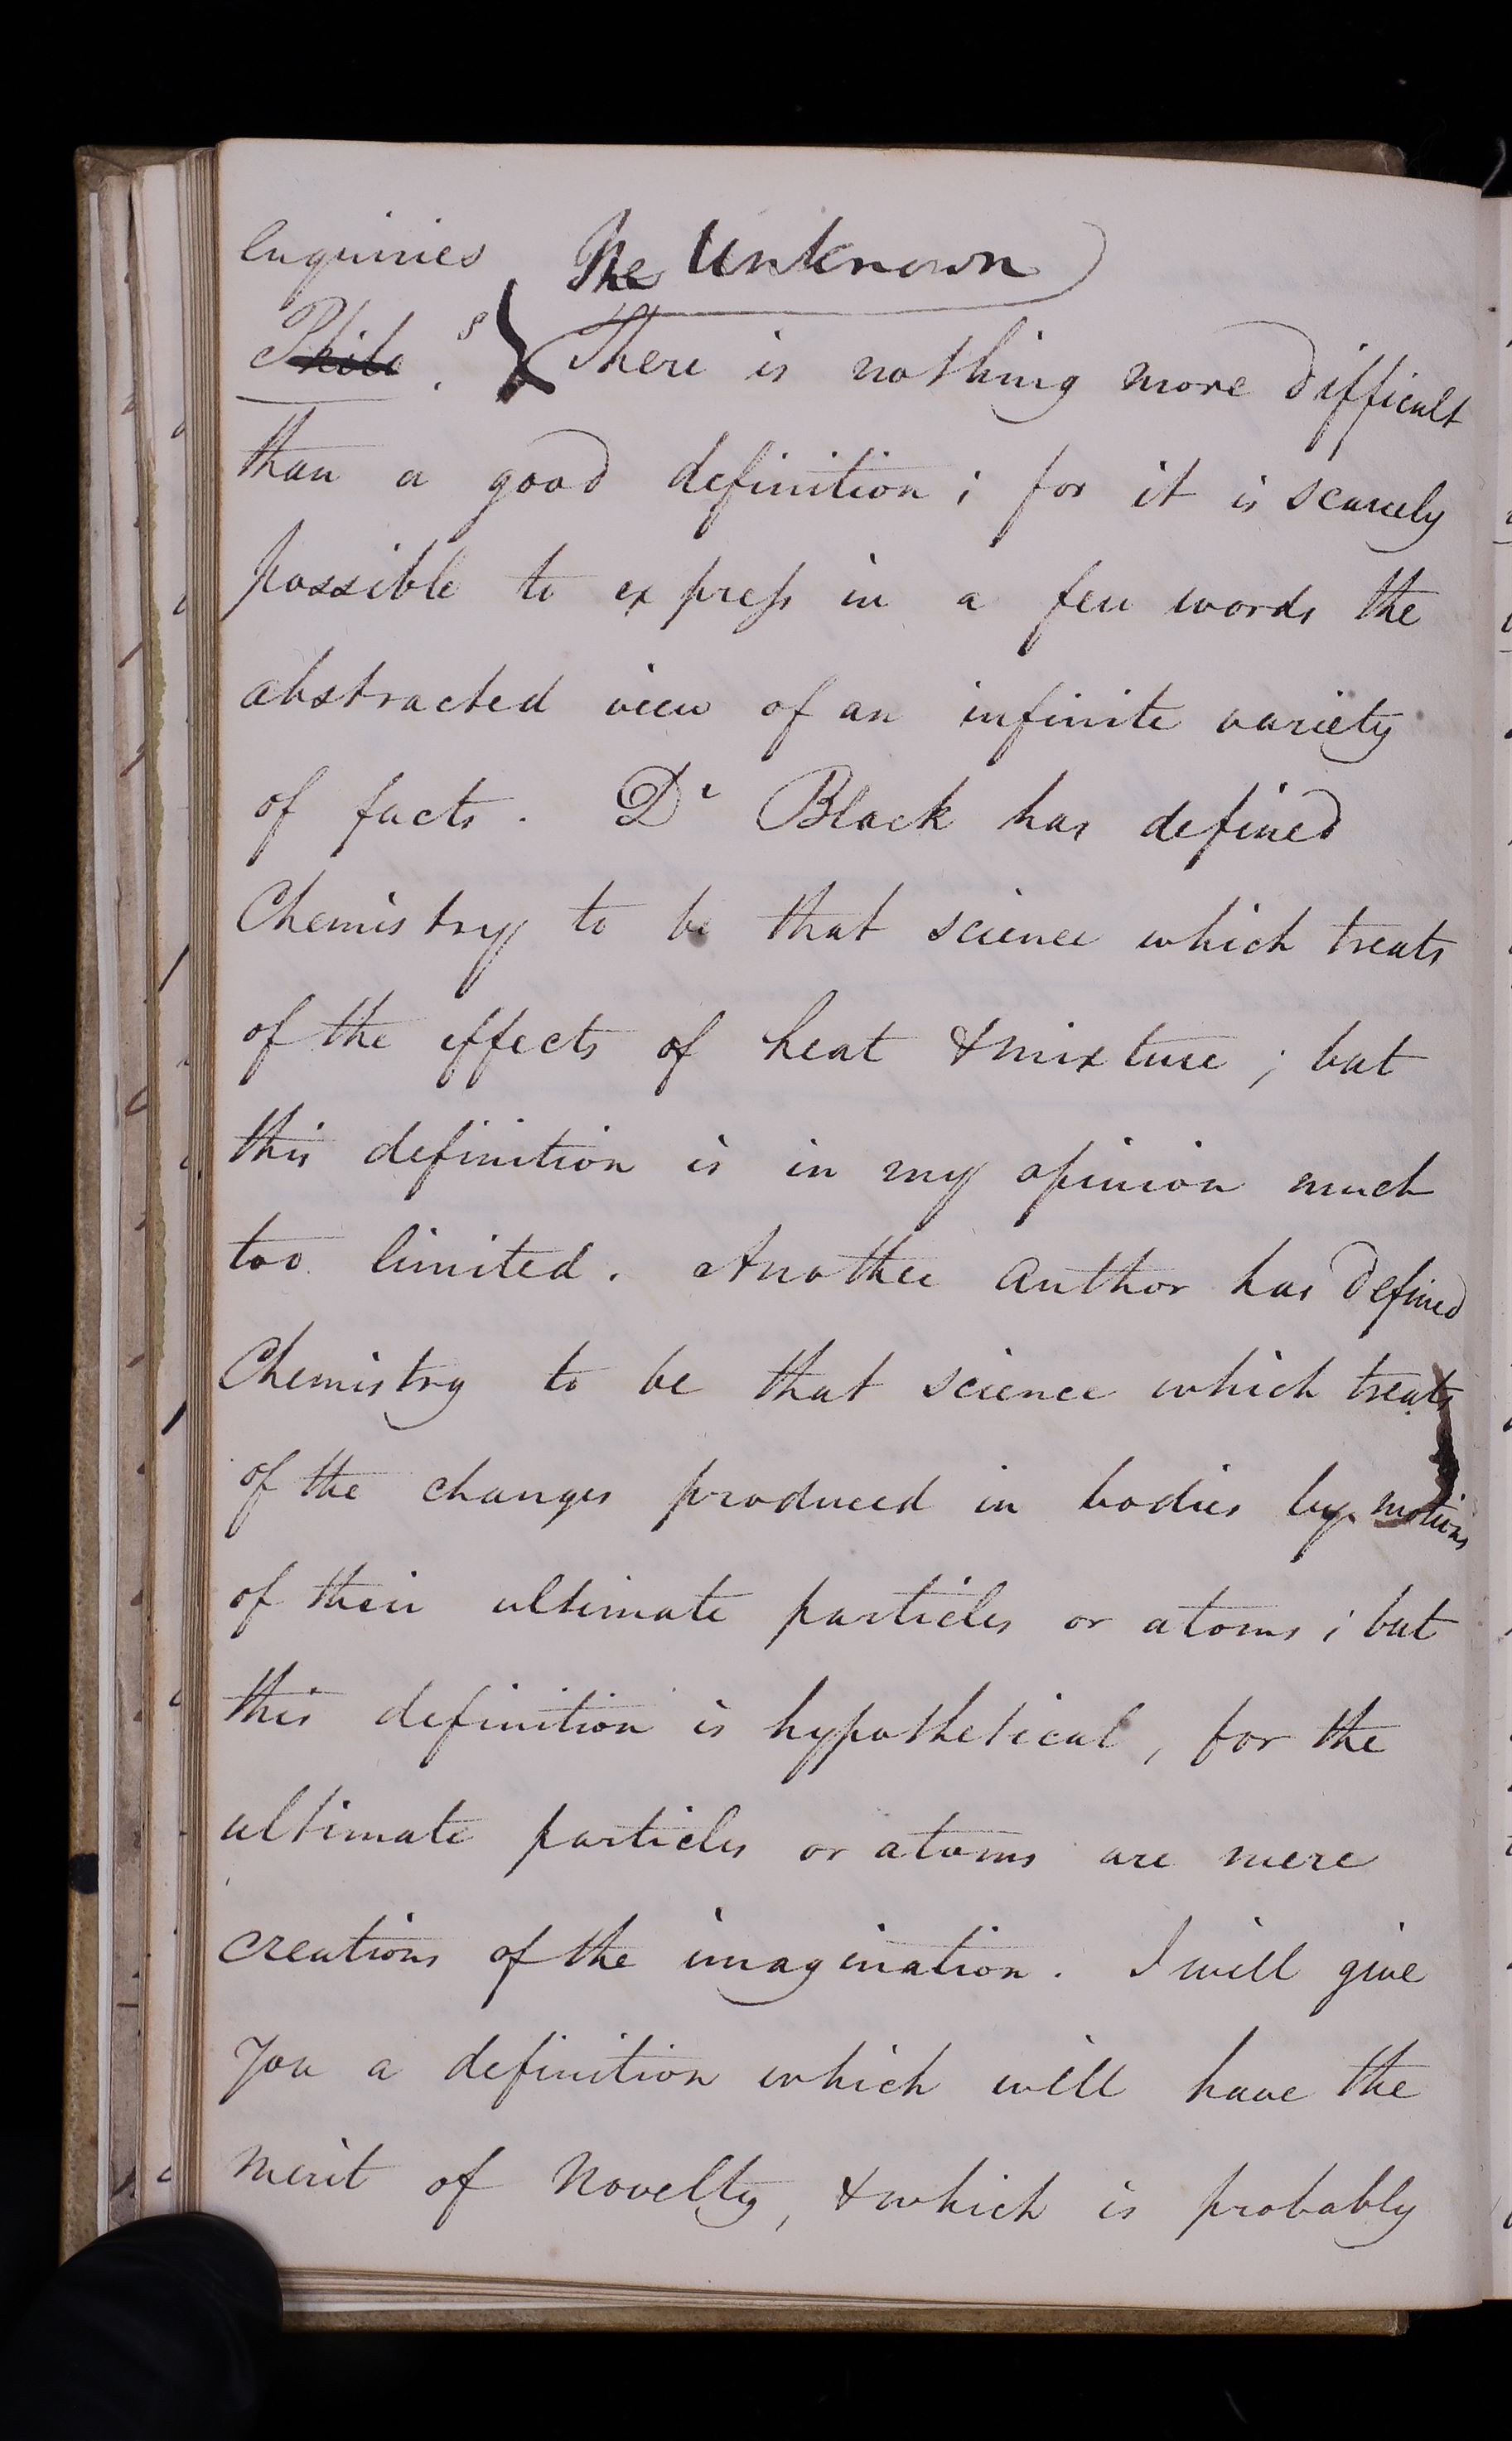 enquiries The Unknown
Philo. There is nothing more difficult
than a good definition; for it is scarcely
possible to express in a few words the
abstracted view of an infinite variety
of facts. Dr Black has defined
Chemistry to be that science which treats
of the effects of heat & mixture; but
this definition is in my opinion much
too limited. Another Author has defined
Chemistry to be that science which treats
of the changes produced in bodies by motions
of their ultimate particles or atoms; but
this definition is hypothetical, for the
ultimate particles or atoms are mere
creations of the imagination. I will give
You a definition which will have the
merit of Novelty, & which is probably